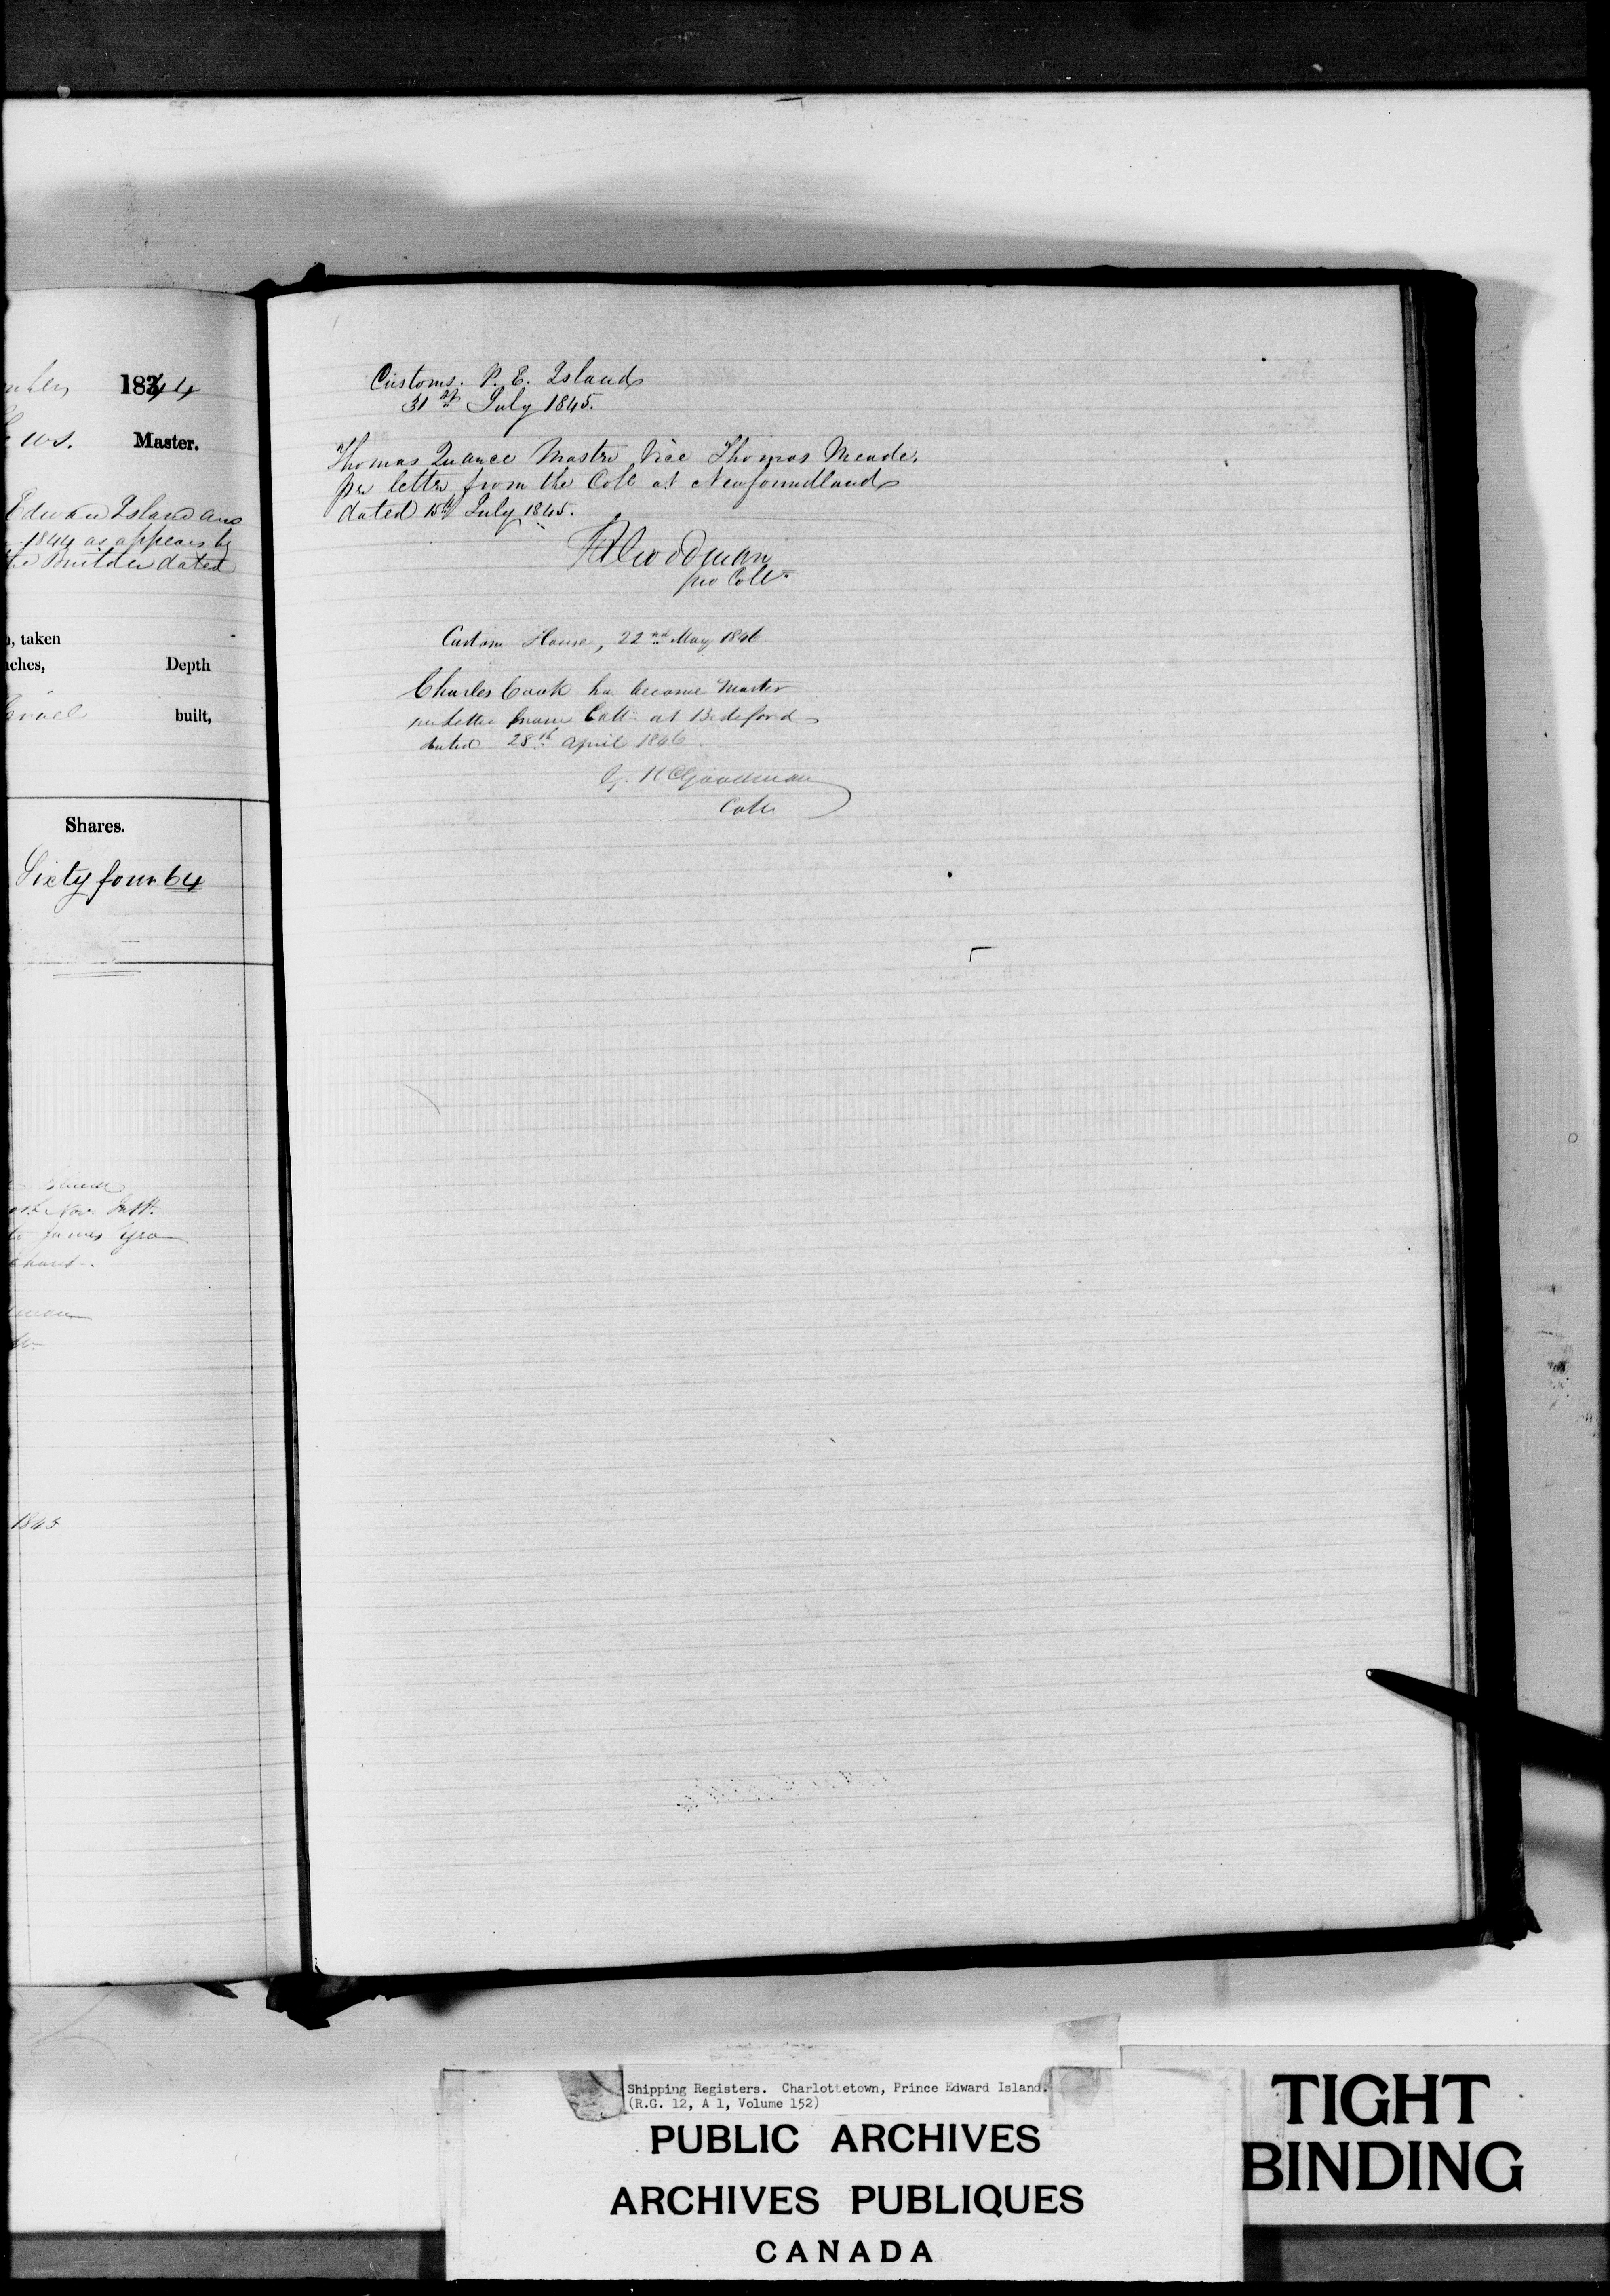 1844
Master.
Edward Island and
1844 as appears by
the Builder dated
, taken
Depth
built,
Shares.
Sixty four 64
to James
1845
Customs. P. E. Island
31st July 1845.
Thomas Quance Master Vice Thomas Meade,
per letter from the Coll at Newfoundland
dated 15th July 1845.
pro Collr
Custom House, 22nd May 1846
Charles Cook has become Master
per Letter from Collr at Bideford
dated 28th April 1846.
Goodman
Collr
Shipping Registers. Charlottetown, Prince Edward Island.
(R.G. 12, A 1, Volume 152)
PUBLIC ARCHIVES
ARCHIVES PUBLIQUES
CANADA
TIGHT
BINDING